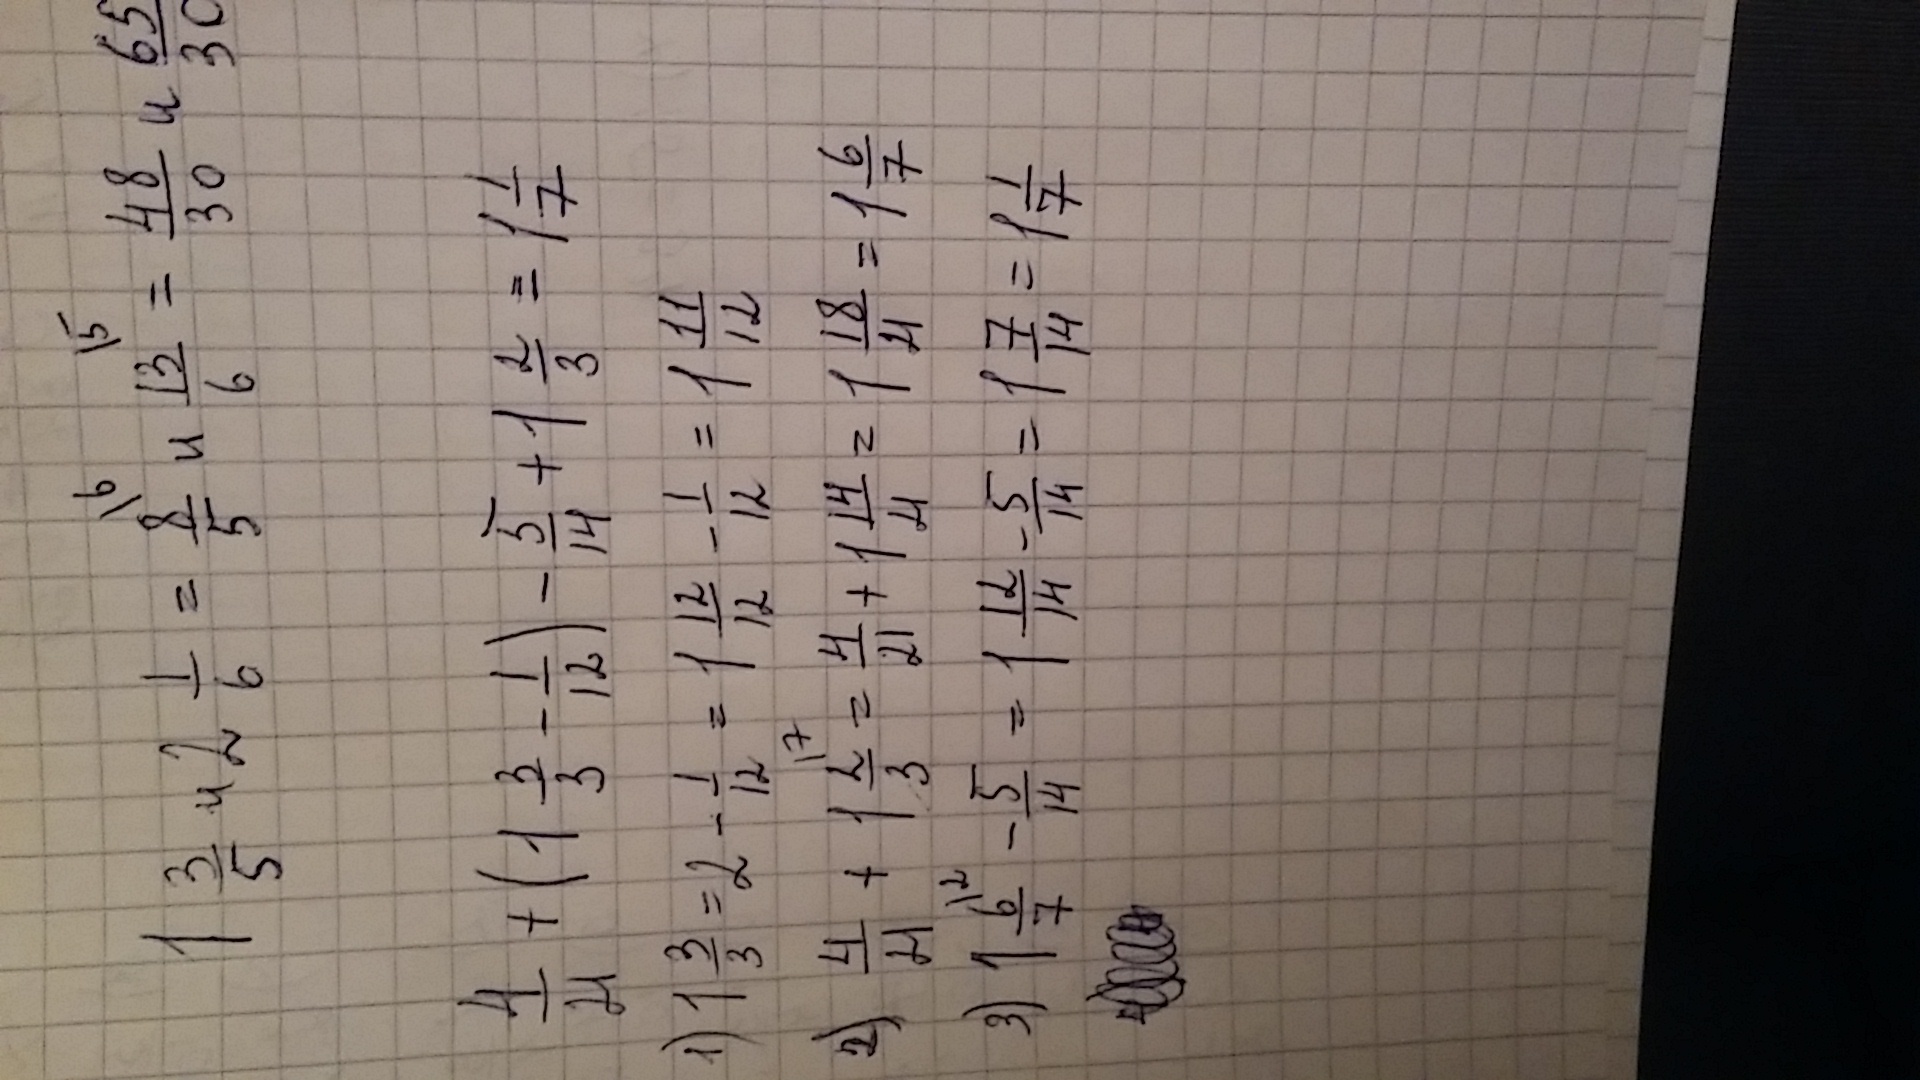 1 3/5 и 2 1/6 = 8/5 \6 и 13/6 \5 = 48/30 и 65/30
4/21 + (1 3/3 - 1/12) - 5/14 + 1 2/3 = 1 1/7
1) 1 3/3 = 2 - 1/12 = 1 12/12 - 1/12 = 1 11/12
2) 4/21 + 1 2/3 \7 = 4/21 + 1 14/21 = 1 18/21 = 1 6/7
3) 1 6/7 \2 - 5/14 = 1 12/14 - 5/14 = 1 7/14 = 1 1/7